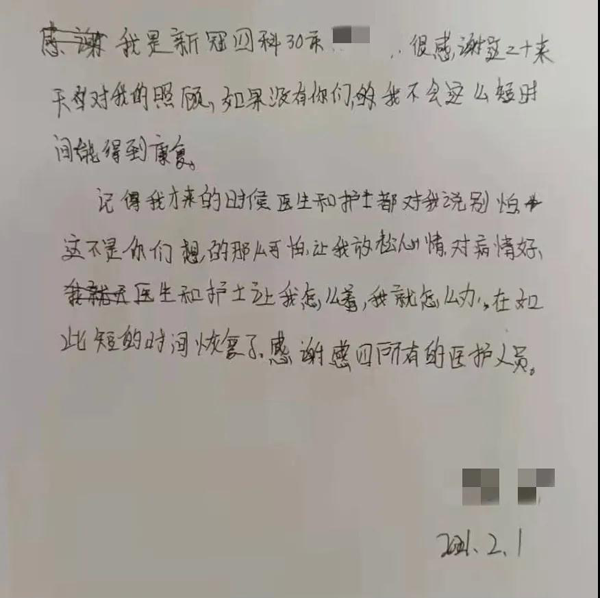 感谢我是新冠四科30床 很感谢这二十来
天对我的照顾,如果没有你们的我不会这么短时
间能得到康复。
记得我才来的时候医生和护士都对我说别怕
这不是你们想的那么可怕,让我放松心情,对病情好,
我就医生和护士让我怎么着,我就怎么办,在如
此短的时间恢复了.感谢感四所有的医护人员。
2021.2.1